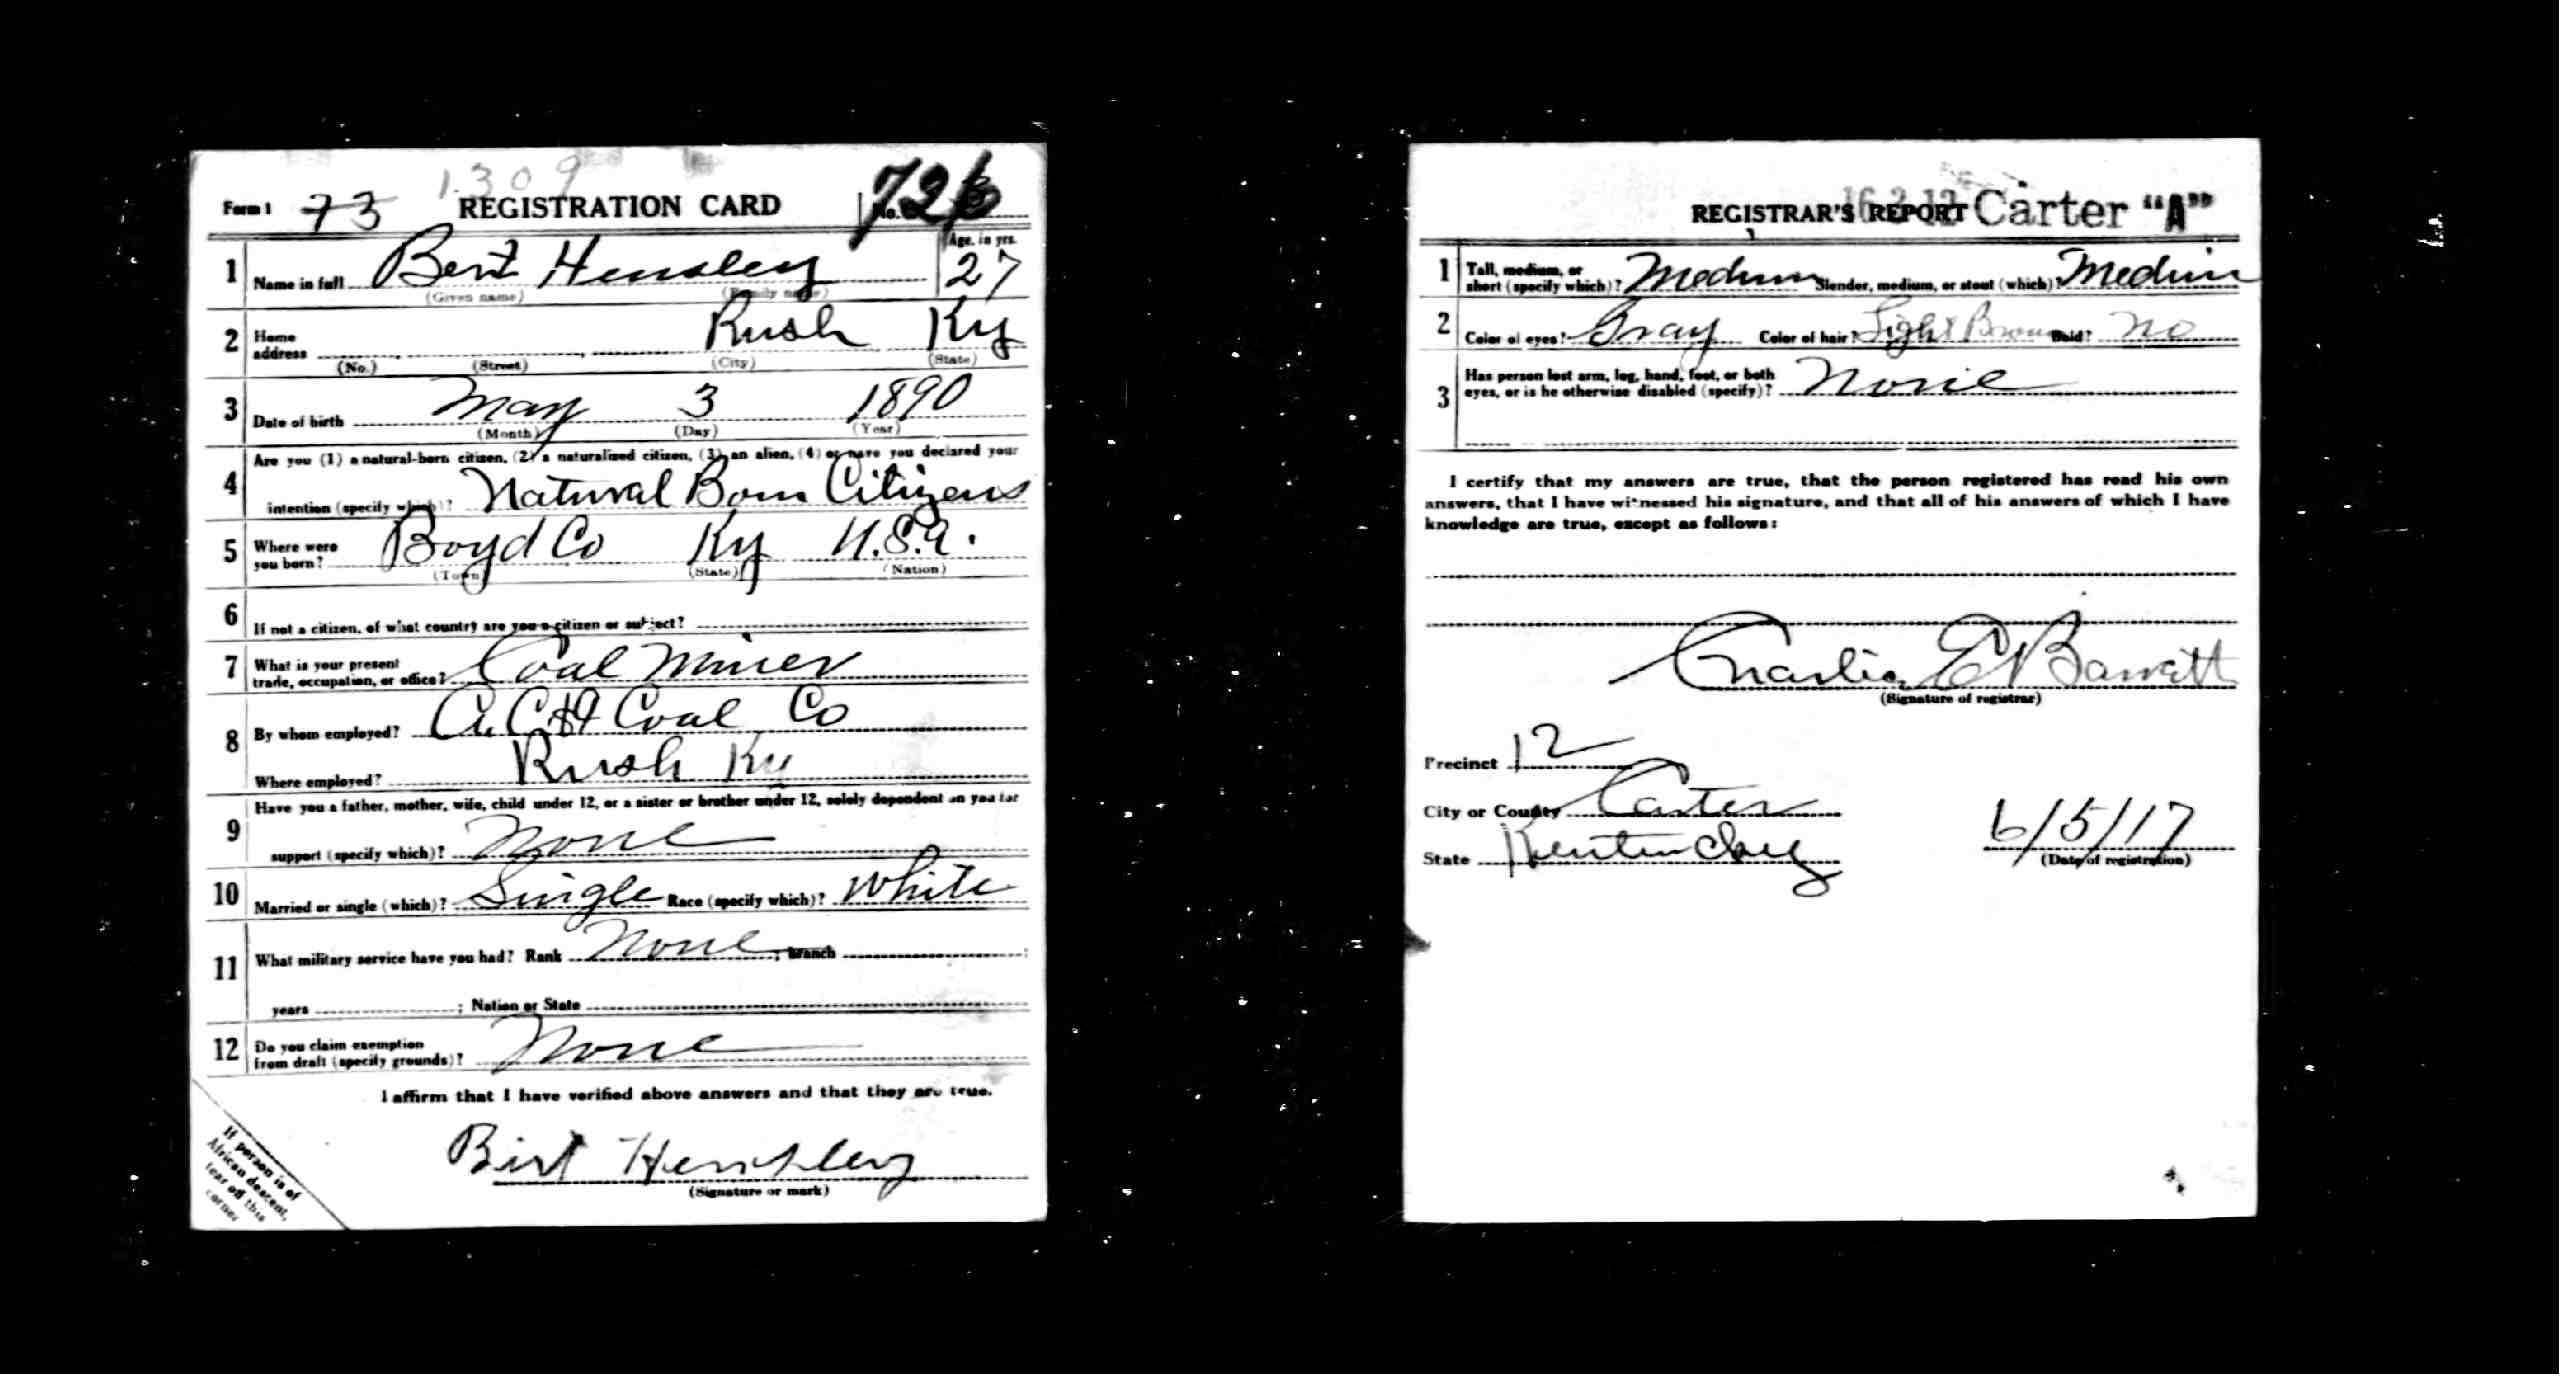 1309
Form 1 73 REGISTRATION CARD No. 726
1 Name in full Bert Hensley Age, in yrs. 27
(Given name) (Family name)
2 Home address Rush Ky
(No.) (Street) (City) (State)
3 Date of birth May 3 1890
(Month) (Day) (Year)
Are you (1) a natural-born citizen, (2) a naturalized citizen, (3) an alien, (4) or have you declared your
4 intention (specify which)? Natural Born Citizens
5 Where were you born? Boyd Co Ky U.S.A.
(Town) (State) (Nation)
6 If not a citizen, of what country are you a citizen or subject?
7 What is your present
trade, occupation, or office? Coal Miner
8 By whom employed? Coal Co
Where employed? Rush Ky
Have you a father, mother, wife, child under 12, or a sister or brother under 12, solely dependent on you for
9 support (specify which)? None
10 Married or single (which)? Single Race (specify which)? White
11 What military service have you had? Rank None ; branch ;
years ; Nation or State
12 Do you claim exemption
from draft (specify grounds)? None
I affirm that I have verified above answers and that they are true.
Birt Henshley
(Signature or mark)
If person is of
African descent,
tear off this
corner
REGISTRAR'S REPORT Carter "A"
1 Tall, medium, or
short (specify which)? Medium Slender, medium, or stout (which)? Medium
2 Color of eyes? Gray Color of hair? Light Brown Bald? No
3 Has person lost arm, leg, hand, foot, or both
eyes, or is he otherwise disabled (specify)? None
I certify that my answers are true, that the person registered has read his own
answers, that I have witnessed his signature, and that all of his answers of which I have
knowledge are true, except as follows:
Charlie E Barratt
(Signature of registrar)
Precinct 12
City or County Carter
State Kentucky 6/5/17
(Date of registration)